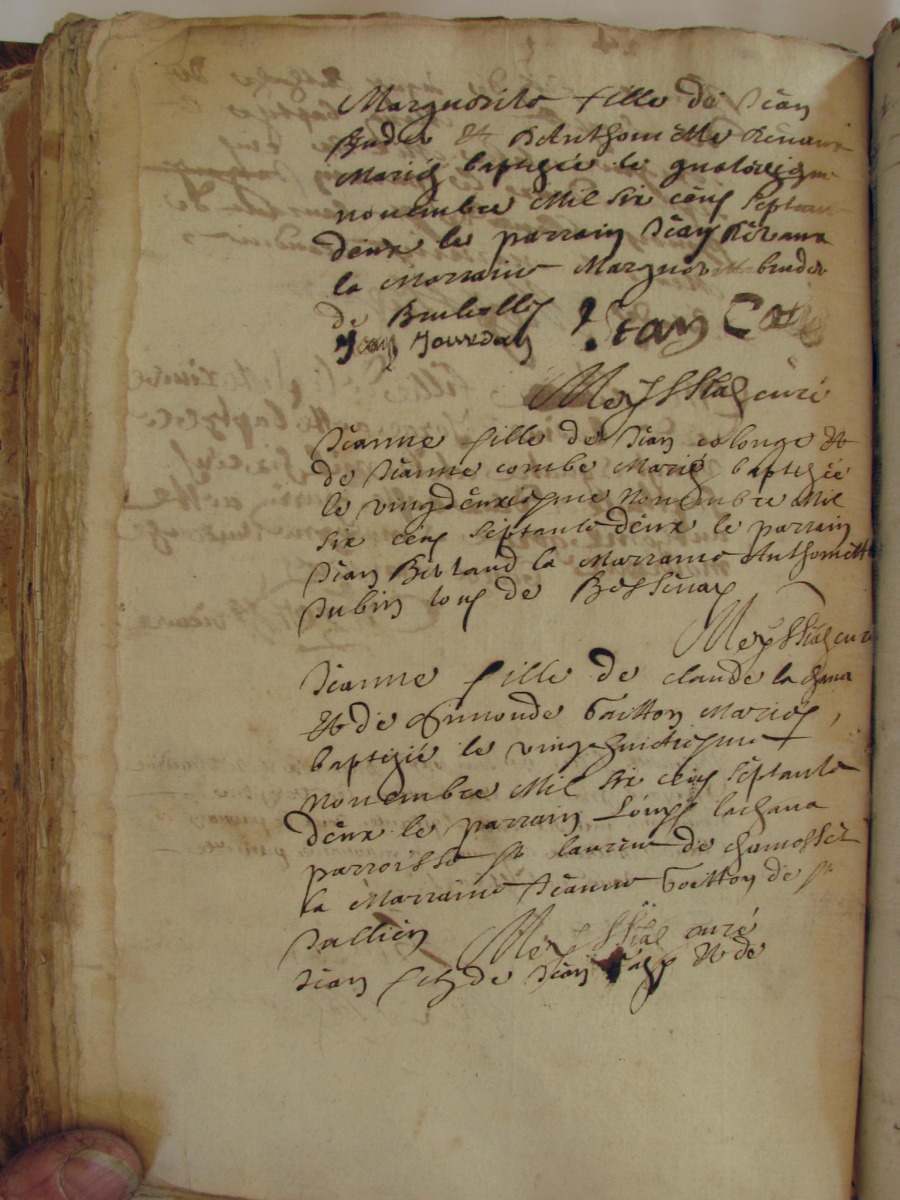 Marguerite fille de Jean
Bruder et d'Anthoinette Renaux
Mariés baptizée le quatorziesme
novembre Mil six cens septante
deux le parrain Jean
la Marraine Marguerite bruder
de Brulliolles
Jean Jourdan Jean
Meyssial curé
Jeanne fille de Jean colonge et
de Jeanne combe Mariés baptizée
le vingdeuxiesme novembre Mil
six cens septante deux le parrain
Jean Bertaud la Marraine Anthoinette
Dubin tous de Bessenay
Meyssial curé
Jeanne fille de claude lachana
et de Simonde Goitton Mariés,
baptizée le vingthuictiesme
novembre Mil six cens septante
deux le parrain Louys lachana
parroisse St laurent de chamosset
la Marraine Jeanne Goitton de St
Jullien Meyssial curé
Jean filz de Jean et de